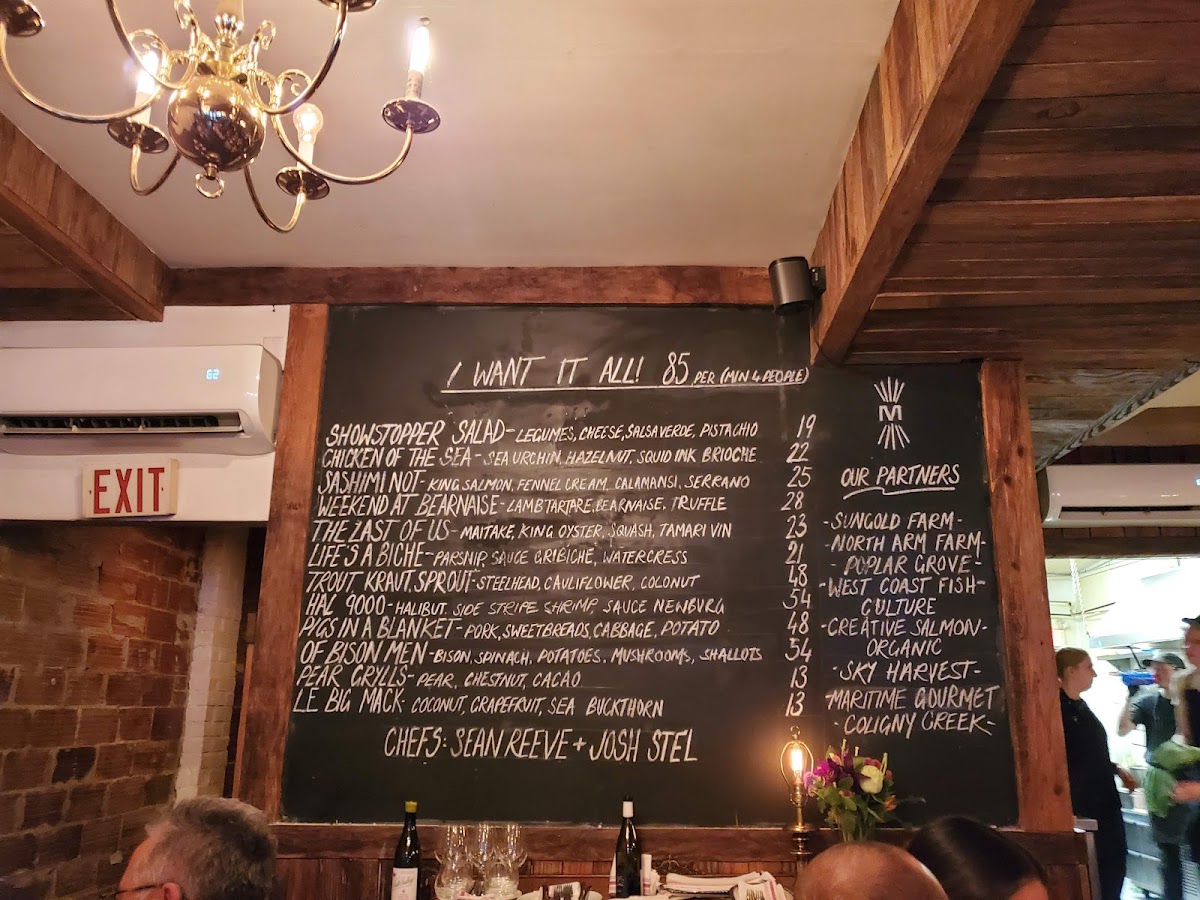 I WANT IT ALL! 85 PER (MIN 4 PEOPLE)
SHOWSTOPPER SALAD - LEGUMES, CHEESE, SALSA VERDE, PISTACHIO 19
CHICKEN OF THE SEA - SEA URCHIN, HAZELNUT, SQUID INK BRIOCHE 22
SASHIMI NOT - KING SALMON, FENNEL CREAM, CALAMANSI, SERRANO 25
WEEKEND AT BEARNAISE - LAMB TARTARE, BEARNAISE, TRUFFLE 28
THE LAST OF US - MAITAKE, KING OYSTER, SQUASH, TAMARI VIN 23
LIFE'S A BICHE - PARSNIP, SAUCE GRIBICHE, WATERCRESS 21
TROUT, KRAUT, SPROUT - STEELHEAD, CAULIFLOWER, COLONUT 48
HAL 9000 - HALIBUT, SIDE STRIPE SHRIMP, SAUCE NEWBURG 54
PIGS IN A BLANKET - PORK, SWEETBREADS, CABBAGE, POTATO 48
OF BISON MEN - BISON, SPINACH, POTATOES, MUSHROOMS, SHALLOTS 54
PEAR GRYLLS - PEAR, CHESTNUT, CACAO 13
LE BIG MACK - COCONUT, GRAPEFRUIT, SEA BUCKTHORN 13
CHEFS: SEAN REEVE + JOSH STEL
M
OUR PARTNERS
- SUNGOLD FARM -
- NORTH ARM FARM -
- POPLAR GROVE -
- WEST COAST FISH -
CULTURE
- CREATIVE SALMON -
ORGANIC
- SKY HARVEST -
- MARITIME GOURMET
- COLIGNY CREEK -
62
EXIT